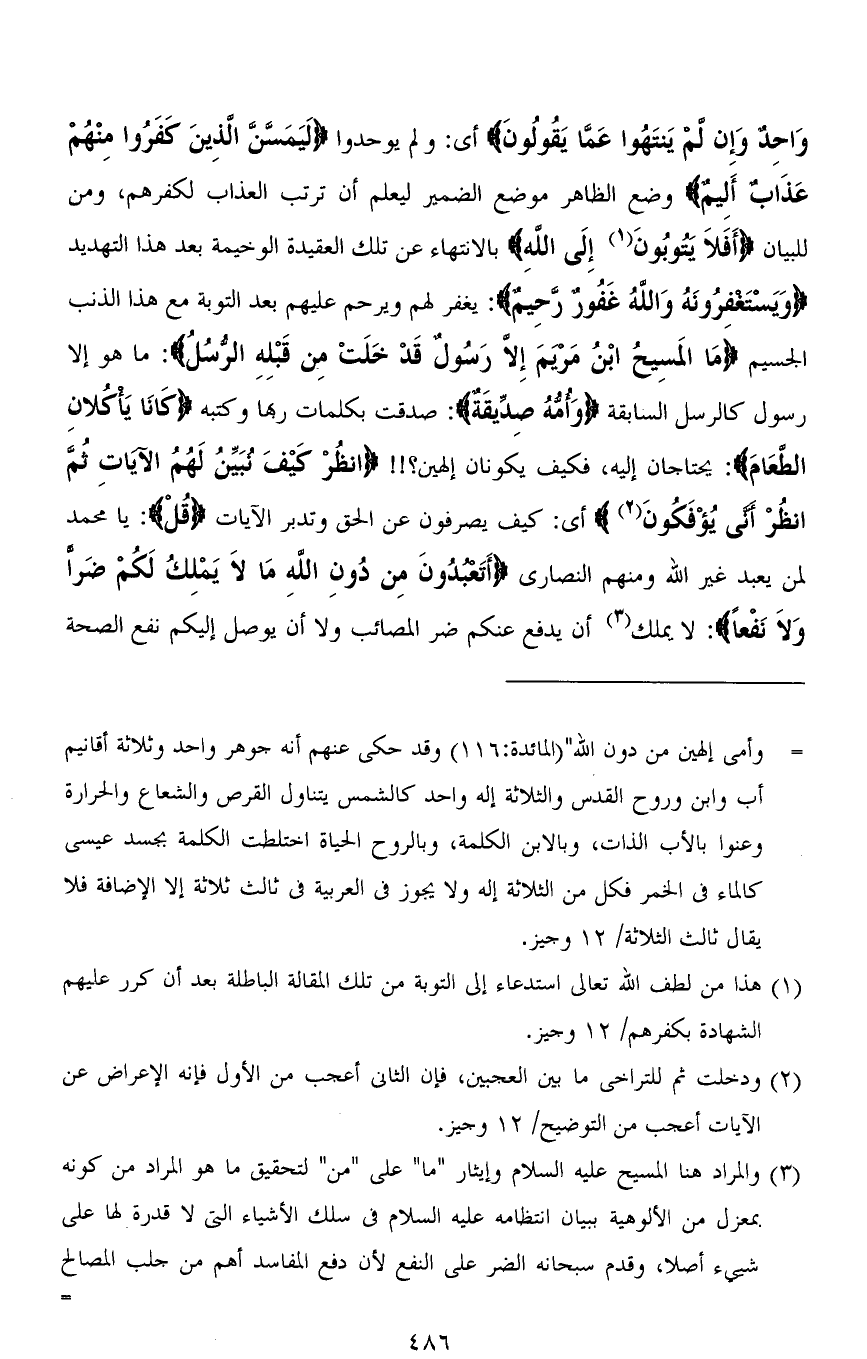 وَاحِدٌ وَإِن لَّمْ يَنتَهُوا عَمَّا يَقُولُونَ﴾ أى: ولم يوحدوا ﴿لَيَمَسَّنَّ الَّذِينَ كَفَرُوا مِنْهُمْ
عَذَابٌ أَلِيمٌ﴾ وضع الظاهر موضع الضمير ليعلم أن ترتب العذاب لكفرهم، ومن
للبيان ﴿أَفَلاَ يَتُوبُونَ(١) إِلَى اللَّهِ﴾ بالانتهاء عن تلك العقيدة الوخيمة بعد هذا التهديد
﴿وَيَسْتَغْفِرُونَهُ وَاللَّهُ غَفُورٌ رَّحِيمٌ﴾: يغفر لهم ويرحم عليهم بعد التوبة مع هذا الذنب
الجسيم ﴿مَا الَمَسِيحُ ابْنُ مَرْيَمَ إِلاَّ رَسُولٌ قَدْ خَلَتْ مِن قَبْلِهِ الرُّسُلُ﴾: ما هو إلا
رسول كالرسل السابقة ﴿وَأُمُّهُ صِدِّيقَةٌ﴾: صدقت بكلمات ربها وكتبه ﴿كَانَا يَأْكُلانِ
الطَّعَامَ﴾: يحتاجان إليه، فكيف يكونان إلهين؟!! ﴿انظُرْ كَيْفَ نُبَيِّنُ لَهُمُ الآيَاتِ ثُمَّ
انظُرْ أَنَّى يُؤْفَكُونَ(٢) ﴾ أى: كيف يصرفون عن الحق وتدبر الآيات ﴿قُلْ﴾: يا محمد
لمن يعبد غير الله ومنهم النصارى ﴿أَتَعْبُدُونَ مِن دُونِ اللَّهِ مَا لاَ يَمْلِكُ لَكُمْ ضَراًّ
وَلاَ نَفْعاً﴾: لا يملك(٣) أن يدفع عنكم ضر المصائب ولا أن يوصل إليكم نفع الصحة
= وأمى إلهين من دون الله"(المائدة:١١٦) وقد حكى عنهم أنه جوهر واحد وثلاثة أقانيم
أب وابن وروح القدس والثلاثة إله واحد كالشمس يتناول القرص والشعاع والحرارة
وعنوا بالأب الذات، وبالابن الكلمة، وبالروح الحياة اختلطت الكلمة بجسد عيسى
كالماء فى الخمر فكل من الثلاثة إله ولا يجوز فى العربية فى ثالث ثلاثة إلا الإضافة فلا
يقال ثالث الثلاثة/ ١٢ وجيز.
(١) هذا من لطف الله تعالى استدعاء إلى التوبة من تلك المقالة الباطلة بعد أن كرر عليهم
الشهادة بكفرهم/ ١٢ وجيز.
(٢) ودخلت ثم للتراخى ما بين العجبين، فإن الثانى أعجب من الأول فإنه الإعراض عن
الآيات أعجب من التوضيح/ ١٢ وجيز.
(٣) والمراد هنا المسيح عليه السلام وإيثار "ما" على "من" لتحقيق ما هو المراد من كونه
بمعزل من الألوهية ببيان انتظامه عليه السلام فى سلك الأشياء التى لا قدرة لها على
شييء أصلا، وقدم سبحانه الضر على النفع لأن دفع المفاسد أهم من جلب المصالح
=
٤٨٦